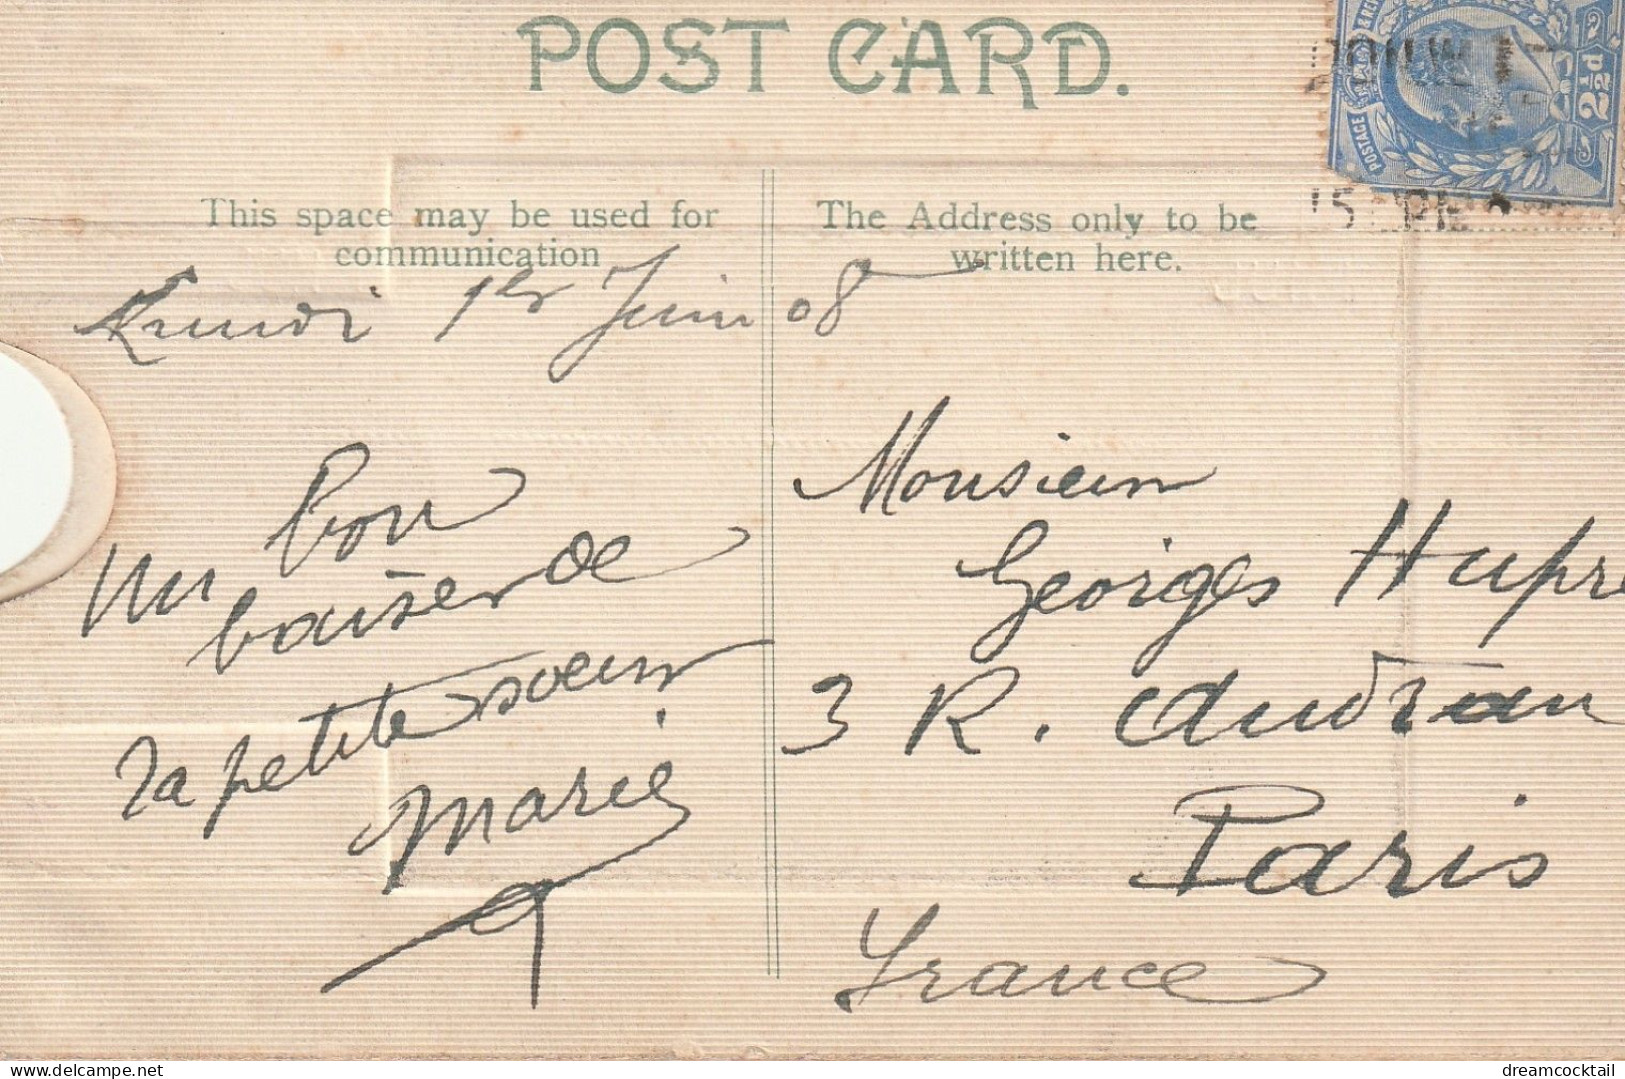 POST CARD.
POSTAGE
2½d
This space may be used for
communication
The Address only to be
written here.
Lundi 1er Juin 08
Un bon
baiser de
ta petite soeur
Marie
Monsieur
Georges Hupré
3 R. Audran
Paris
France
dreamcocktail